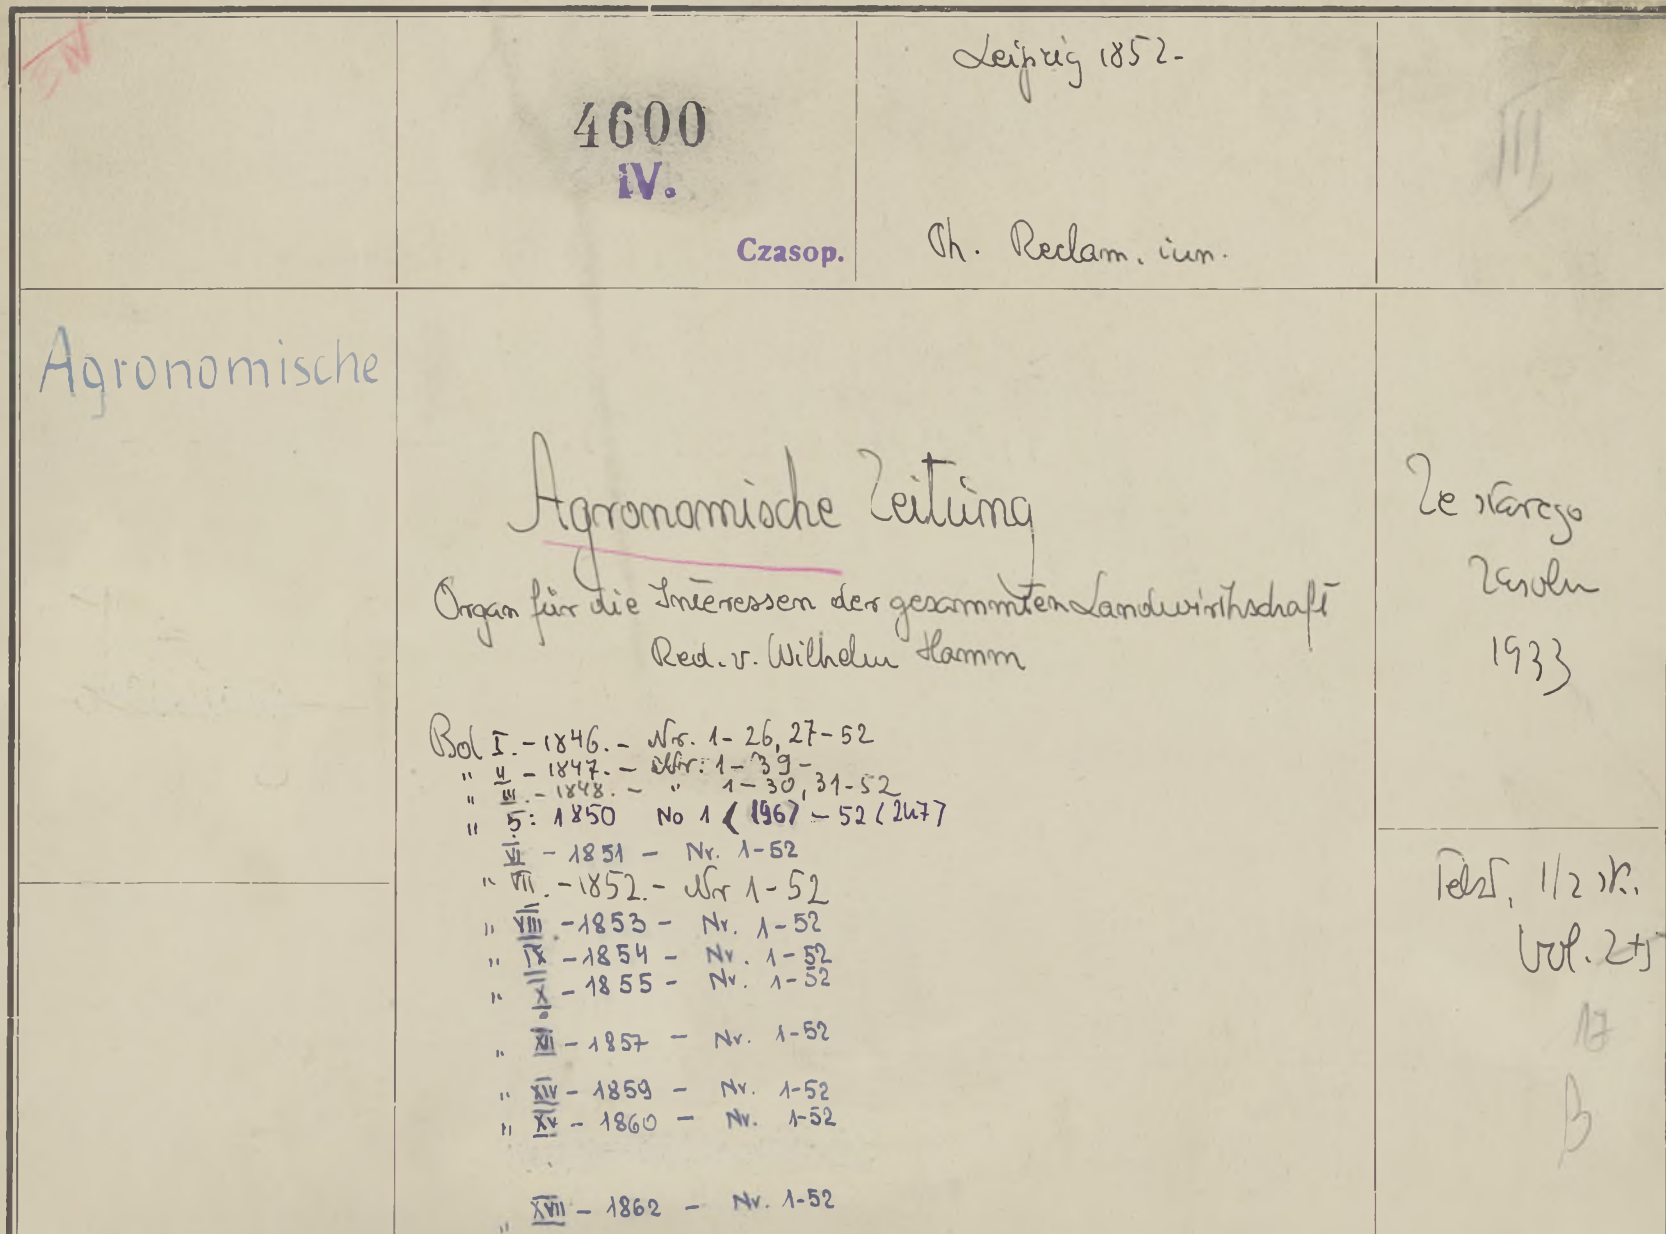 Leipzig 1852-
4600
IV.
III
Czasop.
Ph. Reclam. iun.
Agronomische
Agronomische Zeitung
Organ für die Interessen der gesammten Landwirthschaft
Red. v. Wilhelm Hamm
Ze starego
zasobu
1933
Bd I. - 1846. - Nr. 1-26, 27-52
" II - 1847. - Nr: 1-39-
" III. - 1848. - " 1-30, 31-52
" 5: 1850 No 1 (196) - 52 (247)
VI - 1851 - Nr. 1-52
" VII. - 1852. - Nr 1-52
" VIII - 1853 - Nr. 1-52
" IX - 1854 - Nr. 1-52
" X - 1855 - Nr. 1-52
" XII - 1857 - Nr. 1-52
" XIV - 1859 - Nr. 1-52
" XV - 1860 - Nr. 1-52
" XVII - 1862 - Nr. 1-52
Tekt, 1/2 sk.
vol. 2+5
17
B